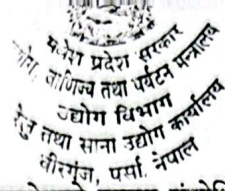 मधेश प्रदेश सरकार
उद्योग, वाणिज्य तथा पर्यटन मन्त्रालय
उद्योग विभाग
घरेलु तथा साना उद्योग कार्यालय
वीरगंज, पर्सा, नेपाल